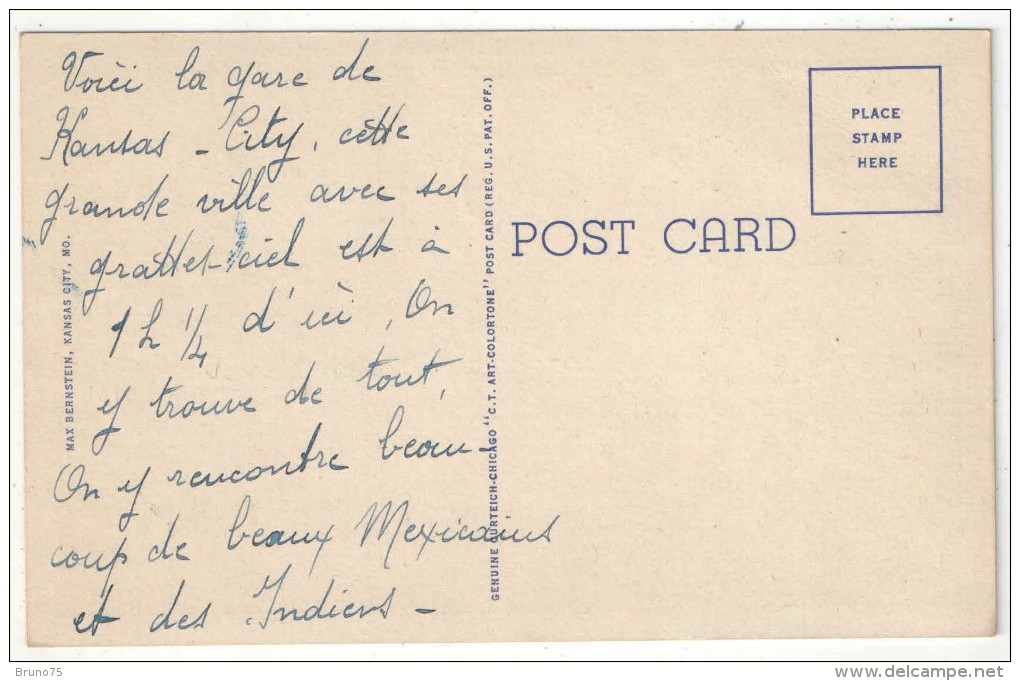 Voici la gare de
Kansas - City, cette
grande ville avec ses
grattes-ciel est à
1 h 1/4 d'ici, On
y trouve de tout,
On y rencontre beau-
coup de beaux Mexicains
et des Indiens -
MAX BERNSTEIN, KANSAS CITY, MO.
GENUINE CURTEICH-CHICAGO "C.T. ART-COLORTONE" POST CARD (REG. U.S. PAT. OFF.)
POST CARD
PLACE
STAMP
HERE
Bruno75
www.delcampe.net